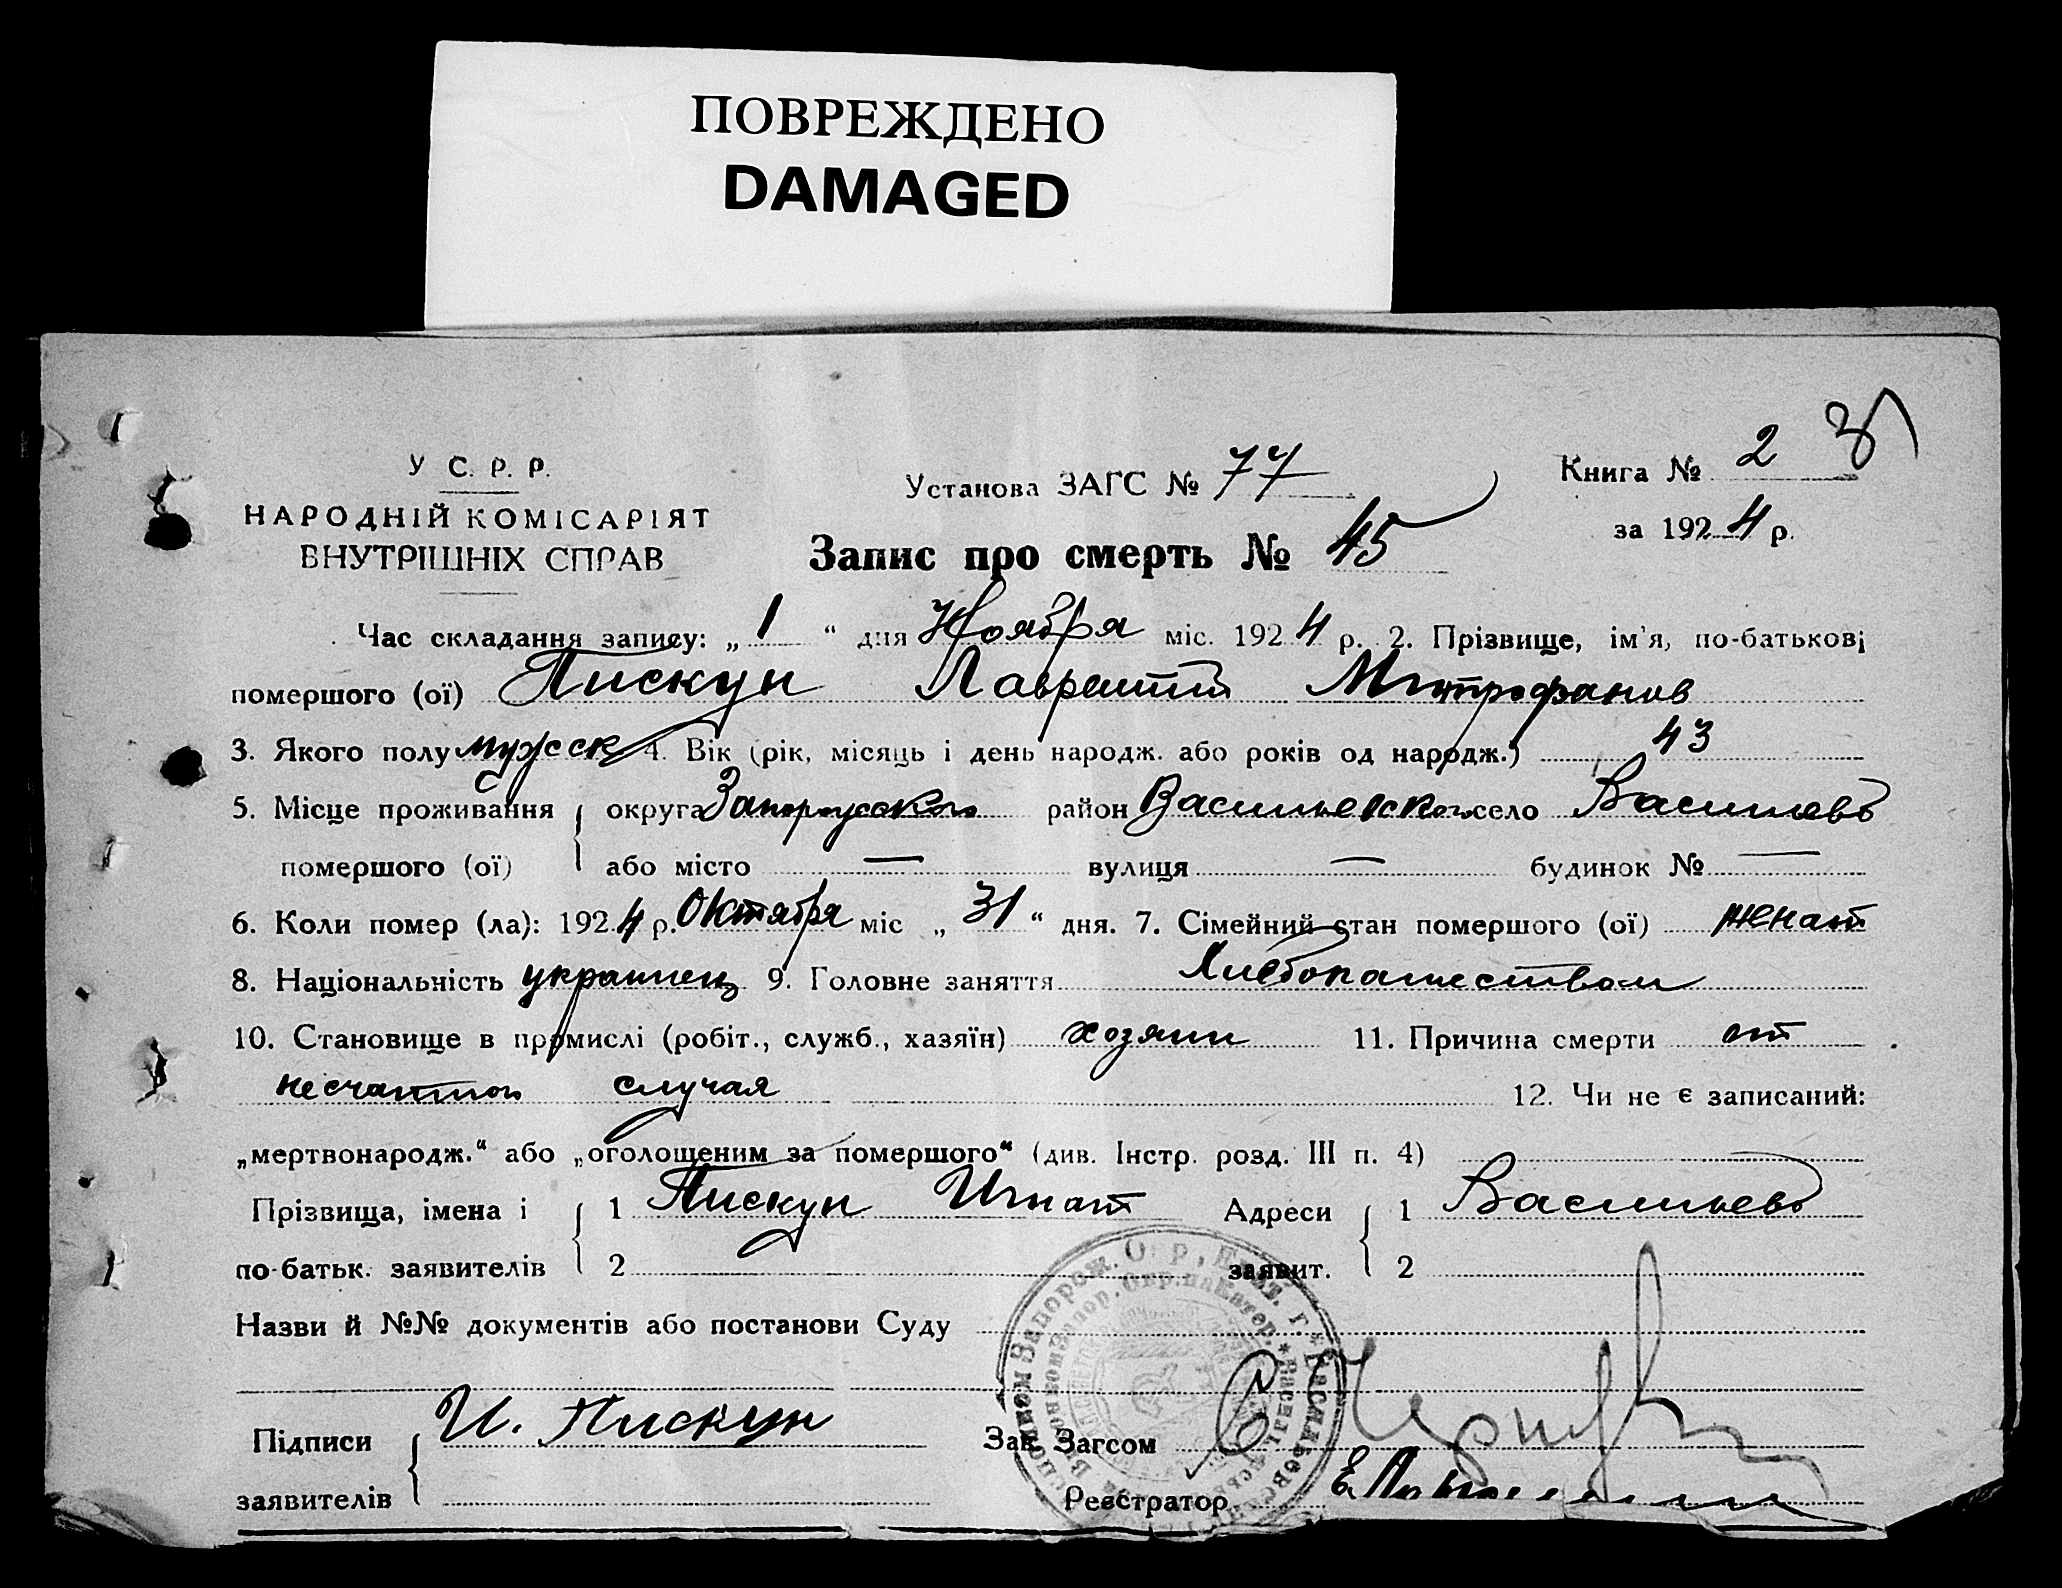 ПОВРЕЖДЕНО
DAMAGED
31
У С. Р. Р.
НАРОДНІЙ КОМІСАРІЯТ
ВНУТРІШНІХ СПРАВ
Установа ЗАГС № 77
Книга № 2
за 1924 р.
Запис про смерть № 45
Час складання запису: „1“ дня Ноября міс. 1924 р. 2. Прізвище, ім'я, по-батькові
помершого (ої) Пискун Лаврентій Митрофанов
3. Якого полу мужск 4. Вік (рік, місяць і день народж. або років од народж.) 43
5. Місце проживання округа Запорожского район Васильевского село Васильевв
помершого (ої) або місто — вулиця — будинок № —
6. Коли помер (ла): 1924 р. Октября міс „31“ дня. 7. Сімейний стан помершого (ої) женат
8. Національність украинец 9. Головне заняття Хлебопашеством
10. Становище в промислі (робіт., служб., хазяїн) хозяин 11. Причина смерти от
несчастного случая 12. Чи не є записаний:
„мертвонародж.“ або „оголошеним за помершого“ (див. Інстр. розд. III п. 4)
Прізвища, імена і 1 Пискун Игнат Адреси 1 Васильевв
по-батьк. заявителів 2 заявит. 2
Назви й №№ документів або постанови Суду
Підписи И. Пискун Зав. Загсом
заявителів Реєстратор